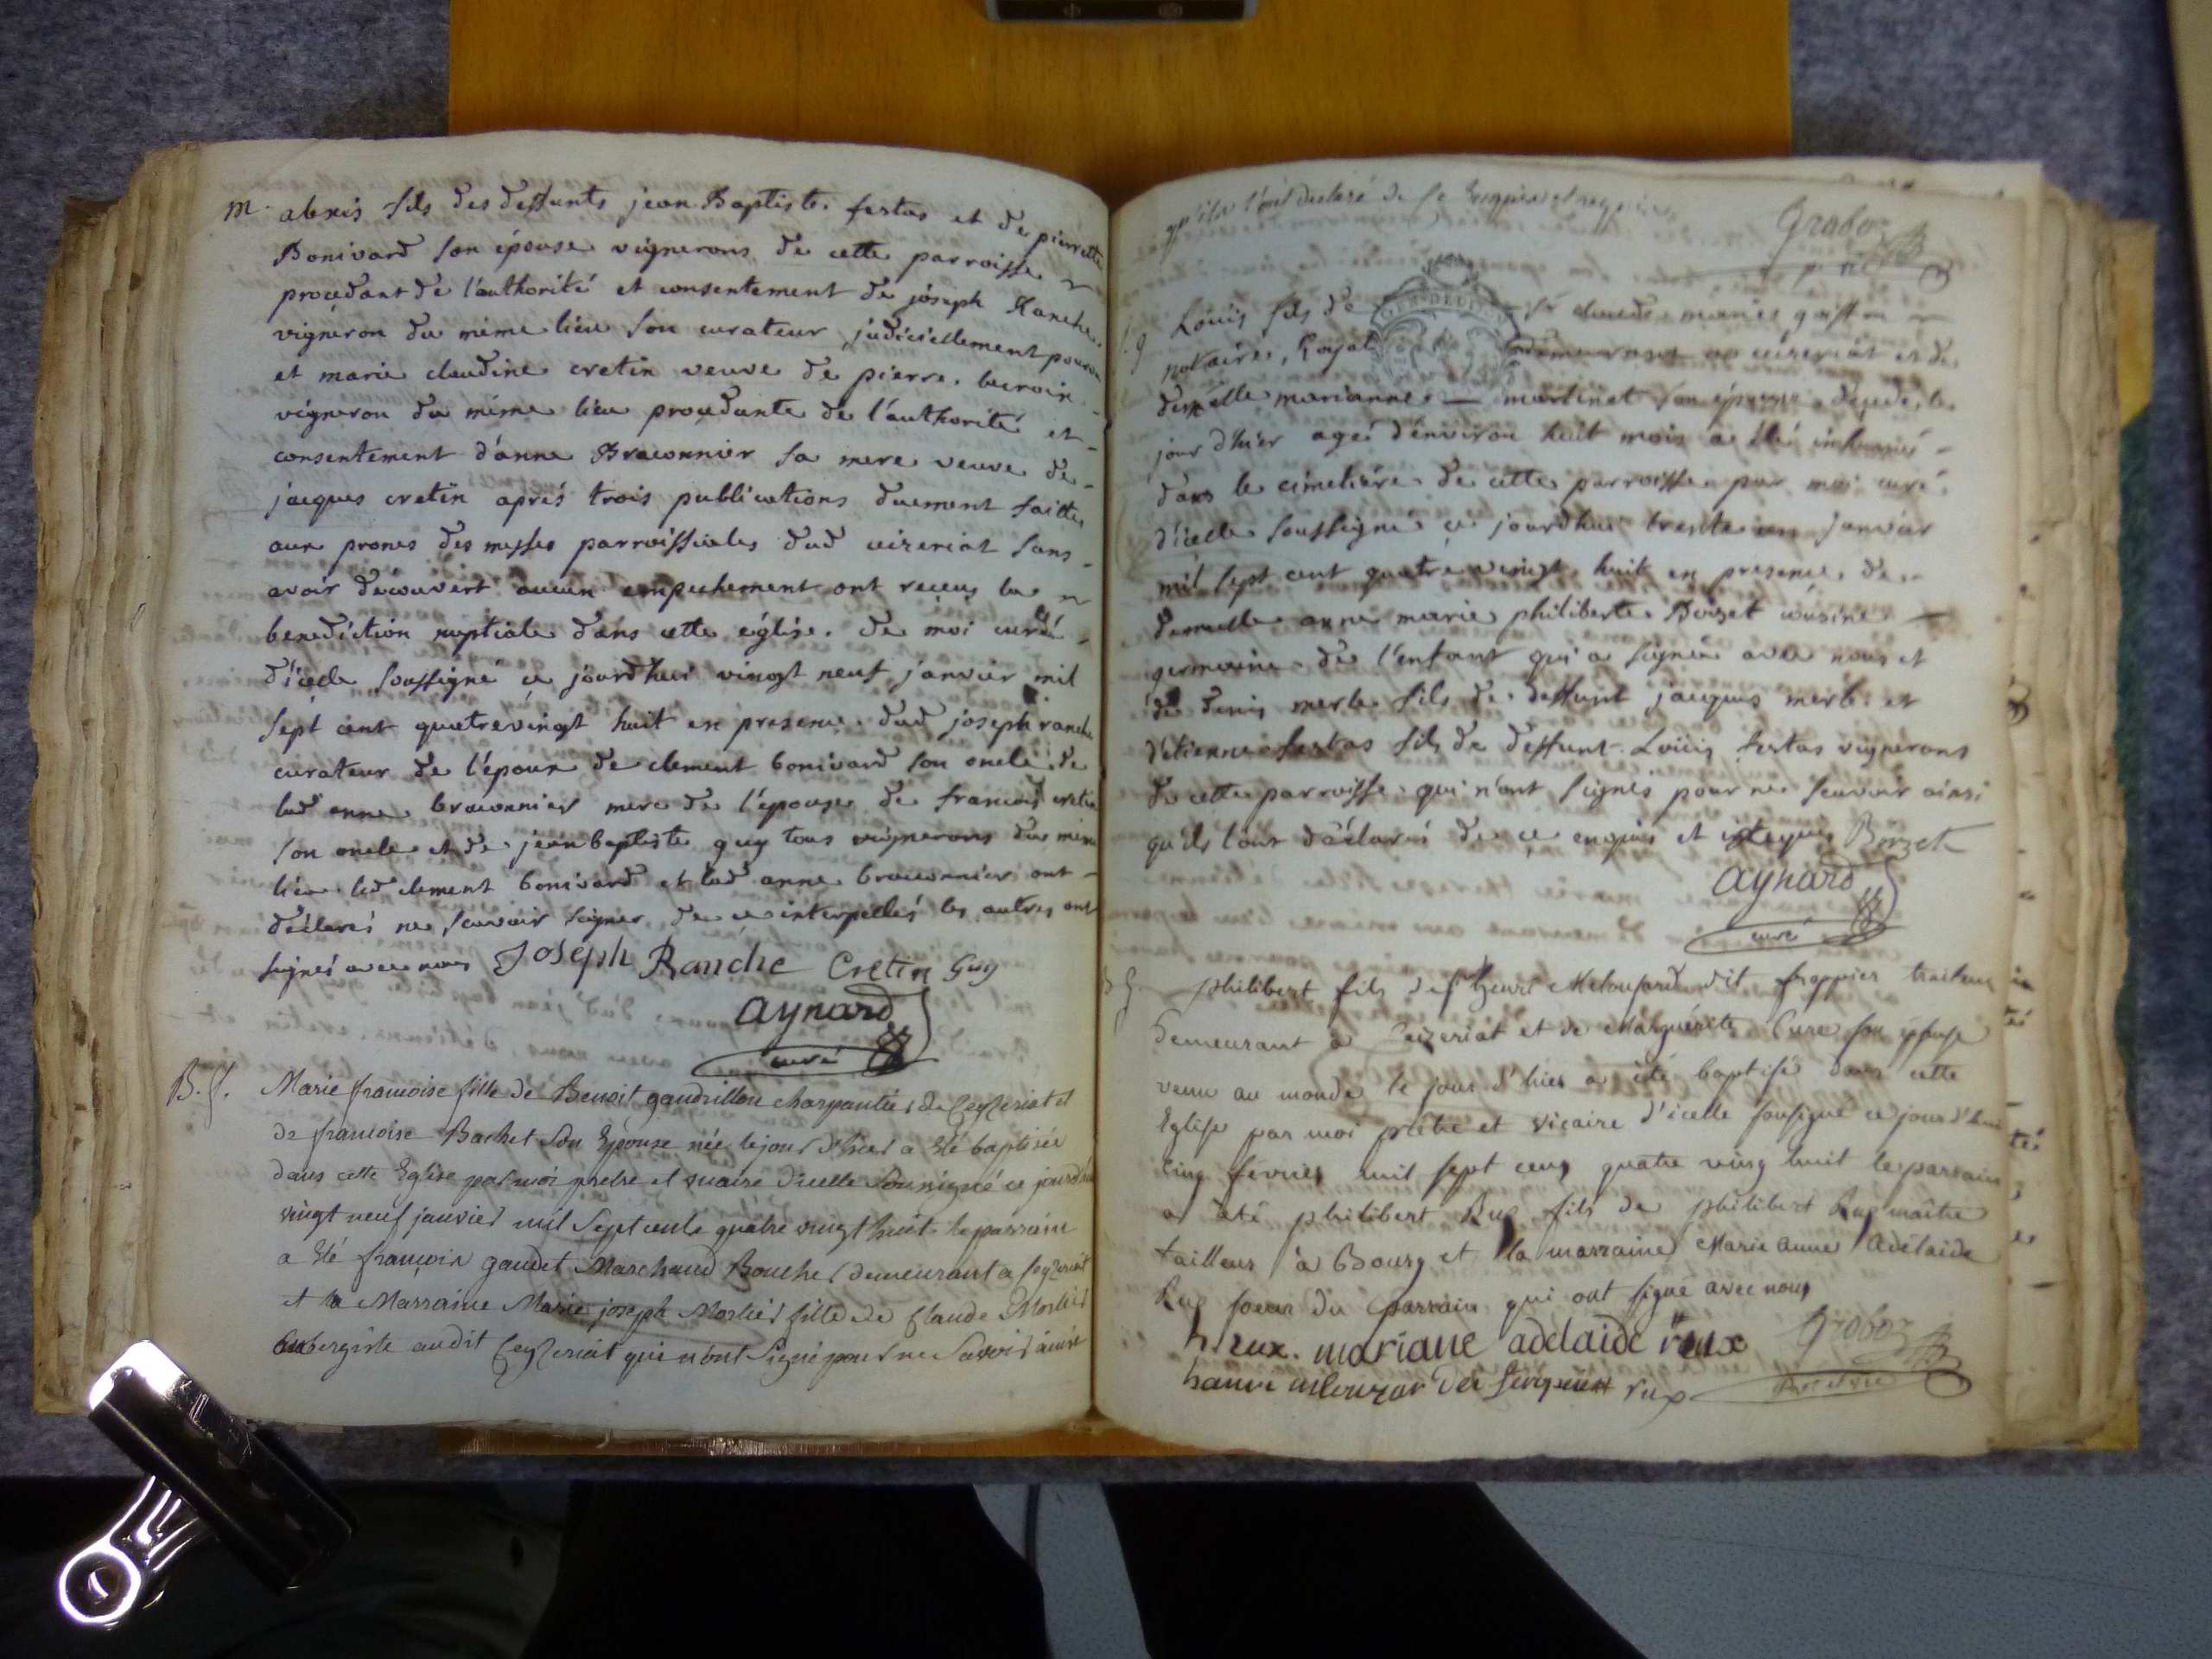 m. alexis fils des deffunts jean Baptiste fertas et de pierrette
Bonivard son épouse vignerons de cette parroisse
procedant de l'authorité et consentement de joseph Ranche
vigneron du même lieu son curateur judiciellement pourvu
et marie claudine cretin veuve de pierre lacroix
vigneron du même lieu procedante de l'authorité et
consentement d'anne Braconnier sa mere veuve de
jacques cretin aprés trois publications duement faittes
aux prones des messes parroissiales dud ceizeriat sans
avoir découvert aucun empechement ont reçeus la
benediction nuptiale dans cette église de moi curé
d'icelle soussigné ce jourdhui vingt neuf janvier mil
sept cent quatrevingt huit en presence dud joseph ranche
curateur de l'époux de clement bonivard son oncle de
lad anne braconnier mere de l'épouse de francois cretin
son oncle et de jean baptiste guy tous vignerons du même
lieu led clement bonivard et lad anne braconnier ont
déclarés ne scavoir signer de ce interpellés les autres ont
signés avec nous Joseph Ranche Cretin Guy
aynard
curé
B. f. Marie francoise fille de Benoit gaudrillon charpantier de Ceyzeriat et
de francoise Bachet son Epouse née le jour d'hier a été baptisée
dans cette Eglise par moi prêtre et vicaire d'icelle soussigné ce jourd'hui
vingt neuf janvier mil sept cents quatre vingt huit le parrain
a été françois gaudet Marchand Boucher demeurant a Ceyzeriat
et la Marraine Marie joseph Morlier fille de Claude Morlier
aubergiste audit Ceyzeriat qui n'ont signé pour ne savoir ainsi
qu'ils l'ont declaré de ce Enquis et requis
Groboz
p. vic
Louis fils de sr claude marie
notaire Royal demeurant a ceizeriat et de
demelle marianne martinet son épouse decedé le
jour d'hier agé d'environ huit mois a été inhumé
dans le cimetiére de cette parroisse par moi curé
d'icelle soussigné ce jourdhui trente un janvier
mil sept cent quatre vingt huit en presence de
demelle anne marie philiberte Bozet cousine
germaine de l'enfant qui a signée avec nous et
de denis merle fils de deffunt jacques merle et
d'etienne fertas fils de deffunt Loüis fertas vignerons
de cette parroisse qui n'ont signés pour ne scavoir ainsi
qu'ils l'ont déclarés de ce enquis et requis Bozet
aynard
curé
philibert fils de henri dit frappier traiteur
demeurant a Ceizeriat et de Marguerite Cure son epouse
venu au monde le jour d'hier a été baptisé dans cette
Eglise par moi prêtre et vicaire d'icelle sousigné ce jour d'hui
cinq février mil sept cens quatre vingt huit le parrain
a été philibert Rux fils de philibert Rux maître
tailleur à Bourg et la marraine Marie anne Adelaide
Rux soeur du parrain qui ont signé avec nous
h. rux. mariane adelaide rux Groboz
rux